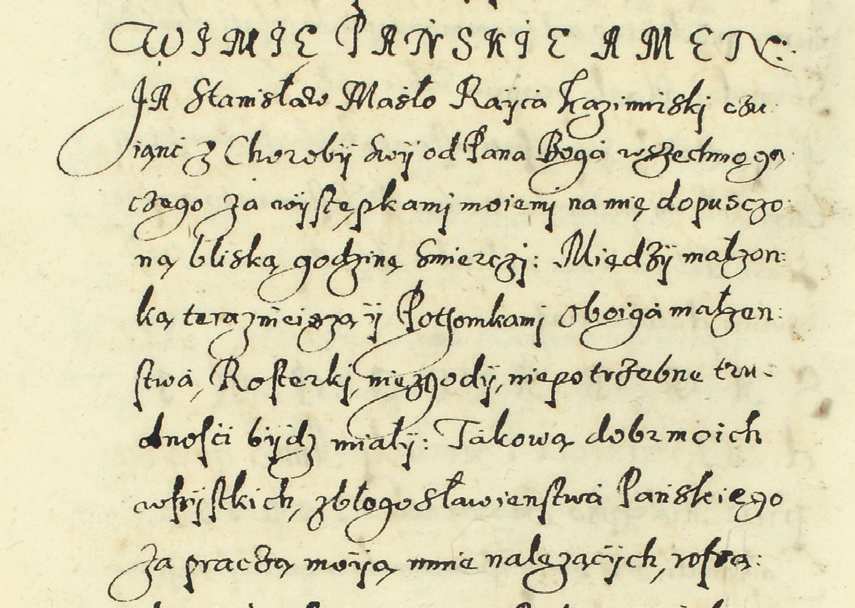 W IMIĘ PAŃSKIE AMEN:
JA Stanisław Masło Rayca Kazimirski czu
iąnć z Choroby swy od Pana Boga wszechmogą
czego za występkami moiemi na mię dopusczo
ną bliską godzinę śmierczj: Między małzon:
ką teraznieiszą y Pothomkami oboiga małzen:
stwa, Rosterki, niezgody, niepotrzebne tru:
dności bydz miały: Takową dobr moich
wszystkich, z błogosławienstwa Pańskiego
za praczą moyą mnie nalezących,